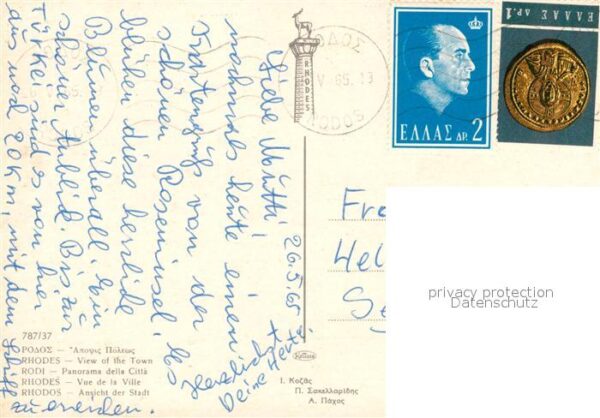 26.5.65
Liebe Mutti!
nochmals heute einen
Frohen gruß von der
schönen Roseninsel. Es
blühen diese herrliche
Blumen überall. Ein
schöner Anblick. Bis zur
Türkei sind es von hier
aus nur 20 km, mit dem
Schiff zu erreichen.
Herzlichst
Deine Herta.
ΡΟΔΟΣ
RHODES
V 65. 13
RHODOS
ΕΛΛΑΣ ΔΡ. 2
ΕΛΛΑΣ ΔΡ. 1
Fr
Hel
Se
privacy protection
Datenschutz
787/37
ΡΟΔΟΣ — Ἄποψις Πόλεως
RHODES — View of the Town
RODI — Panorama della Città
RHODES — Vue de la Ville
RHODOS — Ansicht der Stadt
Ι. Κοζᾶς
Π. Σακελλαρίδης
Α. Πάχος